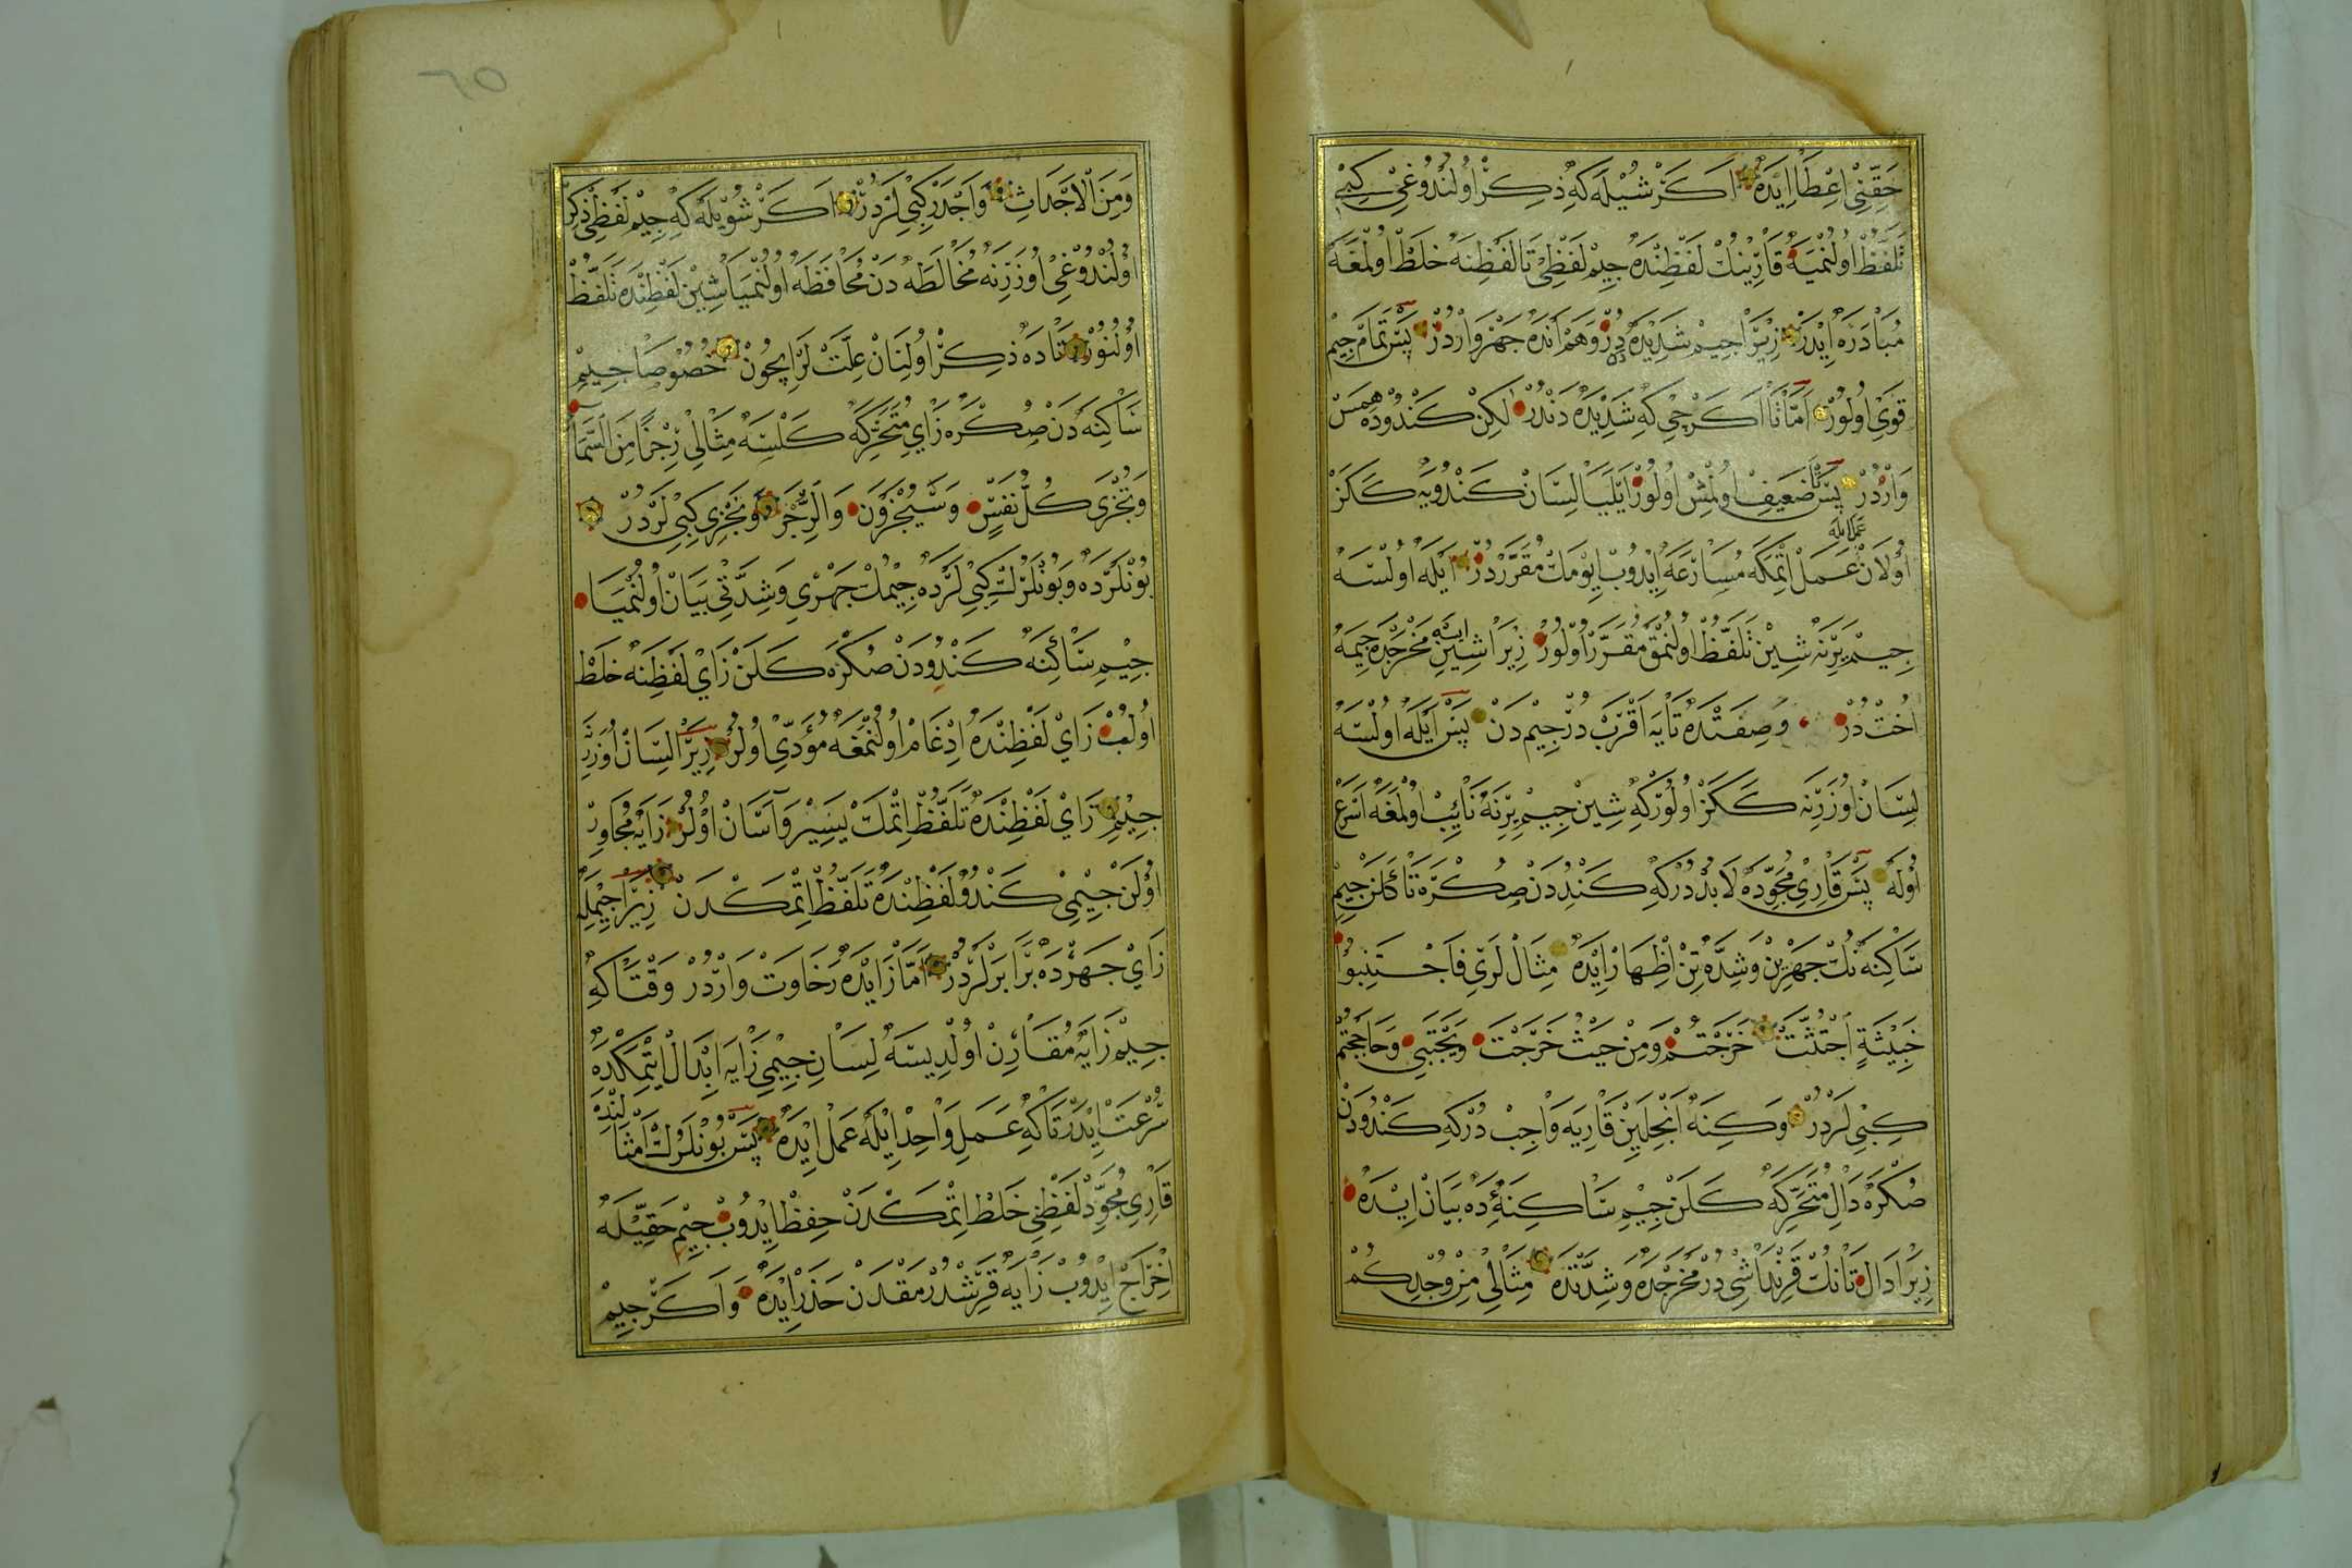 حَقِّنِی اِعْطَا اِیدَه اَکَرْ شُیْلَه کِه ذِکِرْ اُولُنْدُوغِی کِبِی
تَلَفُّظْ اُولُنْمَیَه قَارِینُكْ لَفْظِنْدَه جِیمْ لَفْظِی تَا لَفْظِنَه خَلْطْ اُولْمَغَه
مُبَادَرَه اِیدَرْ زِیرَا جِیمْ شَدِیدَه دِرْ وَهَمْ اَنْدَه جَهْرْ وَارْدُرْ پَسْ تَمَامْ جِیمْ
قَوِی اُولُورْ اَمَّا تَا اَکَرْچِی کِه شَدِیدَه دَنْدُرْ لٰکِنْ کَنْدُودَه هَمْسْ
وَارْدُرْ پَسْ تَا ضَعِیفْ اُولْمِشْ اُولُورْ اَیْلَیَا لِسَانْ کَنْدُویَه کَکَزْ
عَمَلْ اِیلَه
اُولَانْ عَمَلْ اِتْمَکَه مُسَارَعَه اِیدُوبْ اِیُومَكْ مُقَرَّرْدُرْ اَیْلَه اُولْسَه
جِیمْ یَرِنَه شِینْ تَلَفُّظْ اُولُنْمَقْ مُقَرَّرْ اُولُورْ زِیرَا شِینْ مَخْرَجْدَه جِیمَه
اُخْتْ دُرْ وَصِفَتْدَه تَایَه اَقْرَبْ دُرْ جِیمْ دَنْ پَسْ اَیْلَه اُولْسَه
لِسَانْ اُوزَرِنَه کَکَزْ اُولُورْ کِه شِینْ جِیمْ یَرِنَه نَائِبْ اُولْمَغَه اَسْرَعْ
اُولَه پَسْ قَارِی مُجَوِّدَه لَابُدْ دُرْ کِه کَنْدُدَنْ صِکْرَه تَا کَلَنْ جِیمْ
سَاکِنَه نُكْ جَهْرِینْ وَشِدَّتِنْ اِظْهَارْ اِیدَه مِثَالْلَرِی فَاجْتَنِبُوا
خَبِیثَةٍ اجْتُثَّتْ خَرَجْتُمْ وَمِنْ حَیْثُ خَرَجْتَ وَیَجْتَبِی وَحَاجَجْتُمْ
کِبِی لَرْدُرْ وَکِنَه اَنْجِلَیِنْ قَارِیَه وَاجِبْ دُرْ کِه کَنْدُودَنْ
صُکْرَه دَالِ مُتَحَرِّکَه کَلَنْ جِیمِ سَاکِنَه دَه بَیَانْ اِیدَه
زِیرَا دَالْ تَانُكْ قَرِنْدَاشِی دُرْ مَخْرَجْدَه وَشِدَّتْدَه مِثَالِی مِنْ وُجْدِکُمْ
وَمِنَ الْاَجْدَاثِ وَاَجْدَرْ کِبِی لَرْدُرْ اَکَرْ شُویْلَه کِه جِیمْ لَفْظِی ذِکِرْ
اُولُنْدُوغِی اُوزَرِنَه مُخَالَطَه دَنْ مُحَافَظَه اُولُنْمَیَا شِینْ لَفْظِنْدَه تَلَفُّظْ
اُولُنُورْ تَادَه ذِکِرْ اُولِنَانْ عِلَّتْ لَرْ اِیچُونْ خُصُوصَا جِیمِ
سَاکِنَه دَنْ صُکْرَه زَایِ مُتَحَرِّکَه کَلْسَه مِثَالِی رِجْزًا مِنَ السَّمَا
وَتُجْزَی کُلُّ نَفْسٍ وَسَیُجْزَوْنَ وَالرُّجْزَ وَنَجْزِی کِبِی لَرْدُرْ
بُونْلَرْدَه وَبُونْلَرُكْ کِبِی لَرْدَه جِیمُكْ جَهْرِی وَشِدَّتِی بَیَانْ اُولُنْمَیَا
جِیمِ سَاکِنَه کَنْدُودَنْ صُکْرَه کَلَنْ زَایْ لَفْظِنَه خَلْطْ
اُولُبْ زَایْ لَفْظِنْدَه اِدْغَامْ اُولُنْمَغَه مُؤَدِّی اُولُرْ زِیرَا لِسَانْ اُوزَرِ
جِیْمِ زَایْ لَفْظِنْدَه تَلَفُّظْ اِتْمَكْ یَسِیرْ وَآسَانْ اُولُرْ زَایَه مُجَاوِرْ
اُولَنْ جِیمِی کَنْدُو لَفْظِنْدَه تَلَفُّظْ اِتْمَکْدَنْ زِیرَا جِیمْلَه
زَایْ جَهْرْدَه بَرَابَرْلَرْدُرْ اَمَّا زَایْدَه رَخَاوَتْ وَارْدُرْ وَقْتَاکِه
جِیمْ زَایَه مُقَارِنْ اُولْدِیسَه لِسَانِ جِیمِی زَایَه اِبْدَالْ اِتْمَکْدَه
سُرْعَتْ اِیدَرْ تَاکِه عَمَلِ وَاحِدْ اِیلَه عَمَلْ اِیدَه پَسْ بُونْلَرُكْ اَمْثَالِنْدَه
قَارِی مُجَوِّدْ لَفْظِی خَلْطْ اِتْمَکْدَنْ حِفْظْ اِیدُوبْ جِیمِ حَقِیلَه
اِخْرَاجْ اِیدُوبْ زَایَه قَرِشْدُرْمَقْدَنْ حَذَرْ اِیدَه وَاَکَرْ جِیمْ